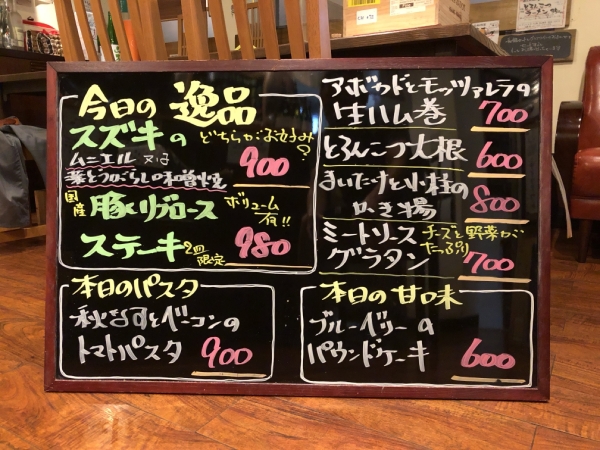 今日の 逸品
スズキの どちらがお好み?
ムニエル 又は
葉とうがらしの味噌焼 900
国産 豚リブロース ボリューム有!!
ステーキ 2皿限定 980
アボカドとモッツァレラの
生ハム巻 700
とろんこつ大根 600
まいたけと小柱の
かき揚 800
ミートソース チーズと野菜が
グラタン たっぷり 700
本日のパスタ
秋なすとベーコンの
トマトパスタ 900
本日の甘味
ブルーベリーの
パウンドケーキ 600